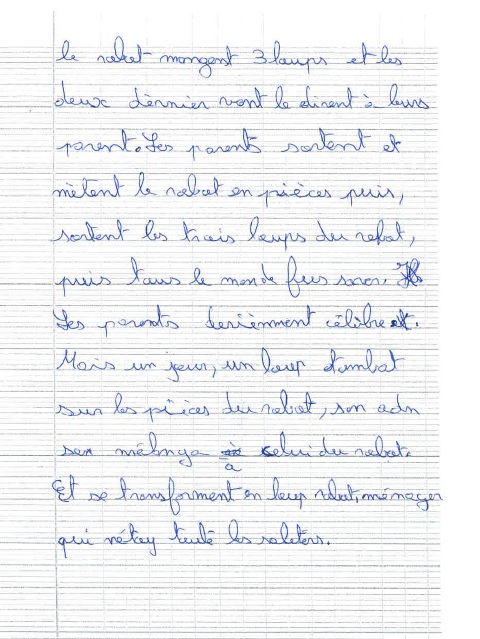 le robot mangent 3 loups et les
deux dèrnier vont le dirent à leurs
parent. Les parents sortent et
mètent le robot en pièces puis,
sortent les trois loups du robot,
puis tous le monde fus sover.
Les parents devienment célèbre.
Mais un jour, un loup tombat
sur les pièces du robot, son adn
se mélanga à celui du robot.
Et se transforment en loup robot, ménager
qui nétoy touté les saleters.